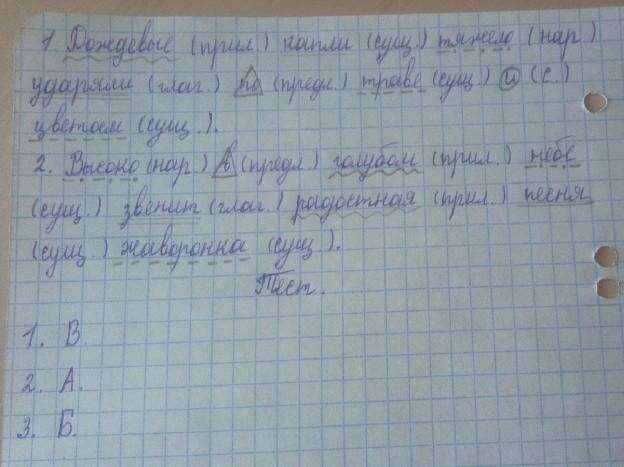 1. Дождевые (прил.) капли (сущ.) тяжело (нар.)
ударяли (глаг.) по (предл.) траве (сущ.) и (с.)
цветам (сущ.).
2. Высоко (нар.) в (предл) голубом (прил.) небе
(сущ.) звенит (глаг.) радостная (прил.) песня
(сущ.) жаворонка (сущ.).
Тест.
1. В.
2. А.
3. Б.